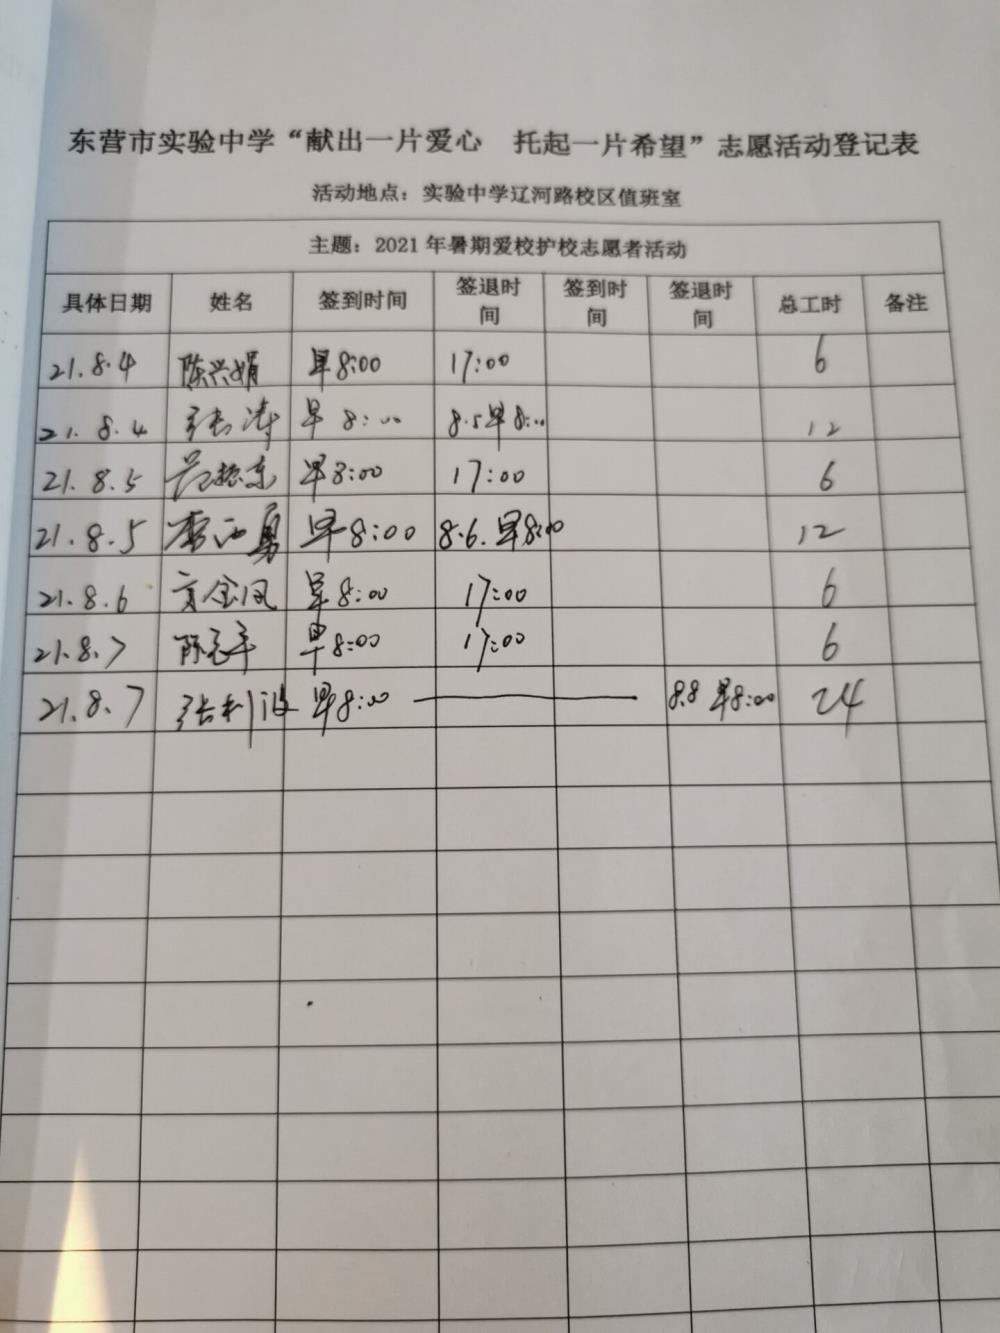 东营市实验中学“献出一片爱心 托起一片希望”志愿活动登记表
活动地点：实验中学辽河路校区值班室
主题：2021年暑期爱校护校志愿者活动
具体日期 姓名 签到时间 签退时间 签到时间 签退时间 总工时 备注
21.8.4 陈兴娟 早8:00 17:00 6
21.8.4 张涛 早8:00 8.5早8:00 12
21.8.5 早8:00 17:00 6
21.8.5 早8:00 8.6.早8:00 12
21.8.6 早8:00 17:00 6
21.8.7 早8:00 17:00 6
21.8.7 张利波 早8:00 8.8早8:00 24